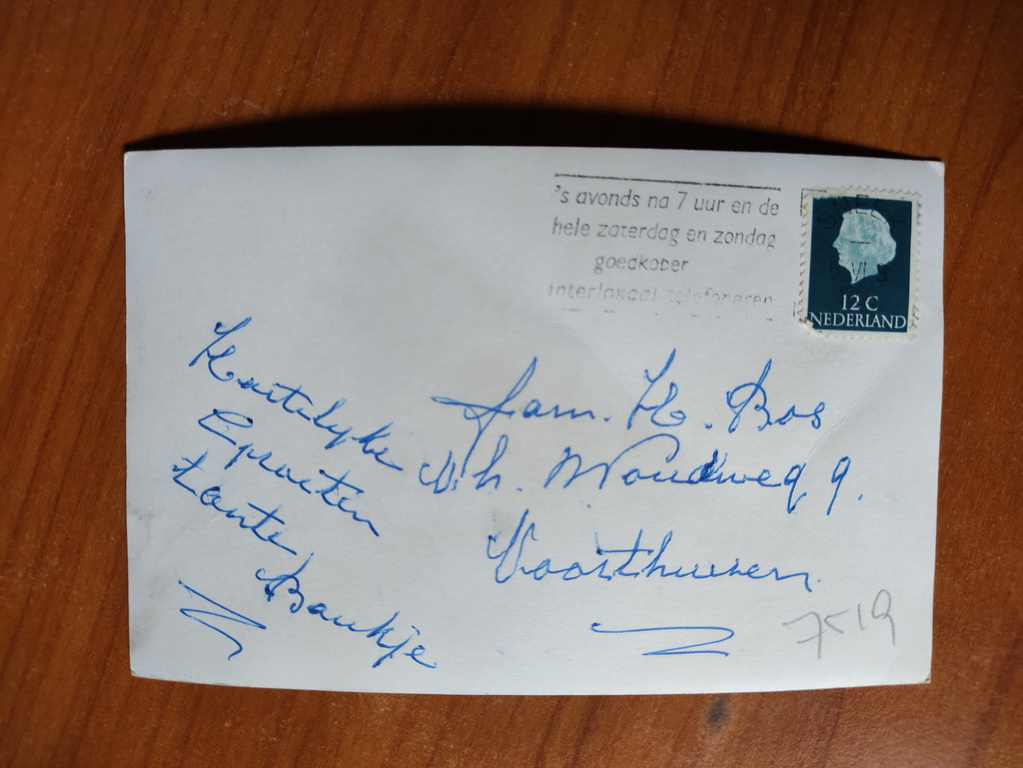 's avonds na 7 uur en de
hele zaterdag en zondag
goedkoper
interlokaal telefoneren
12 C
NEDERLAND
Hartelyke
Groeten
tante
Baukje
fam. H. Bos
Woudweg 9.
Voorthuizen
7519